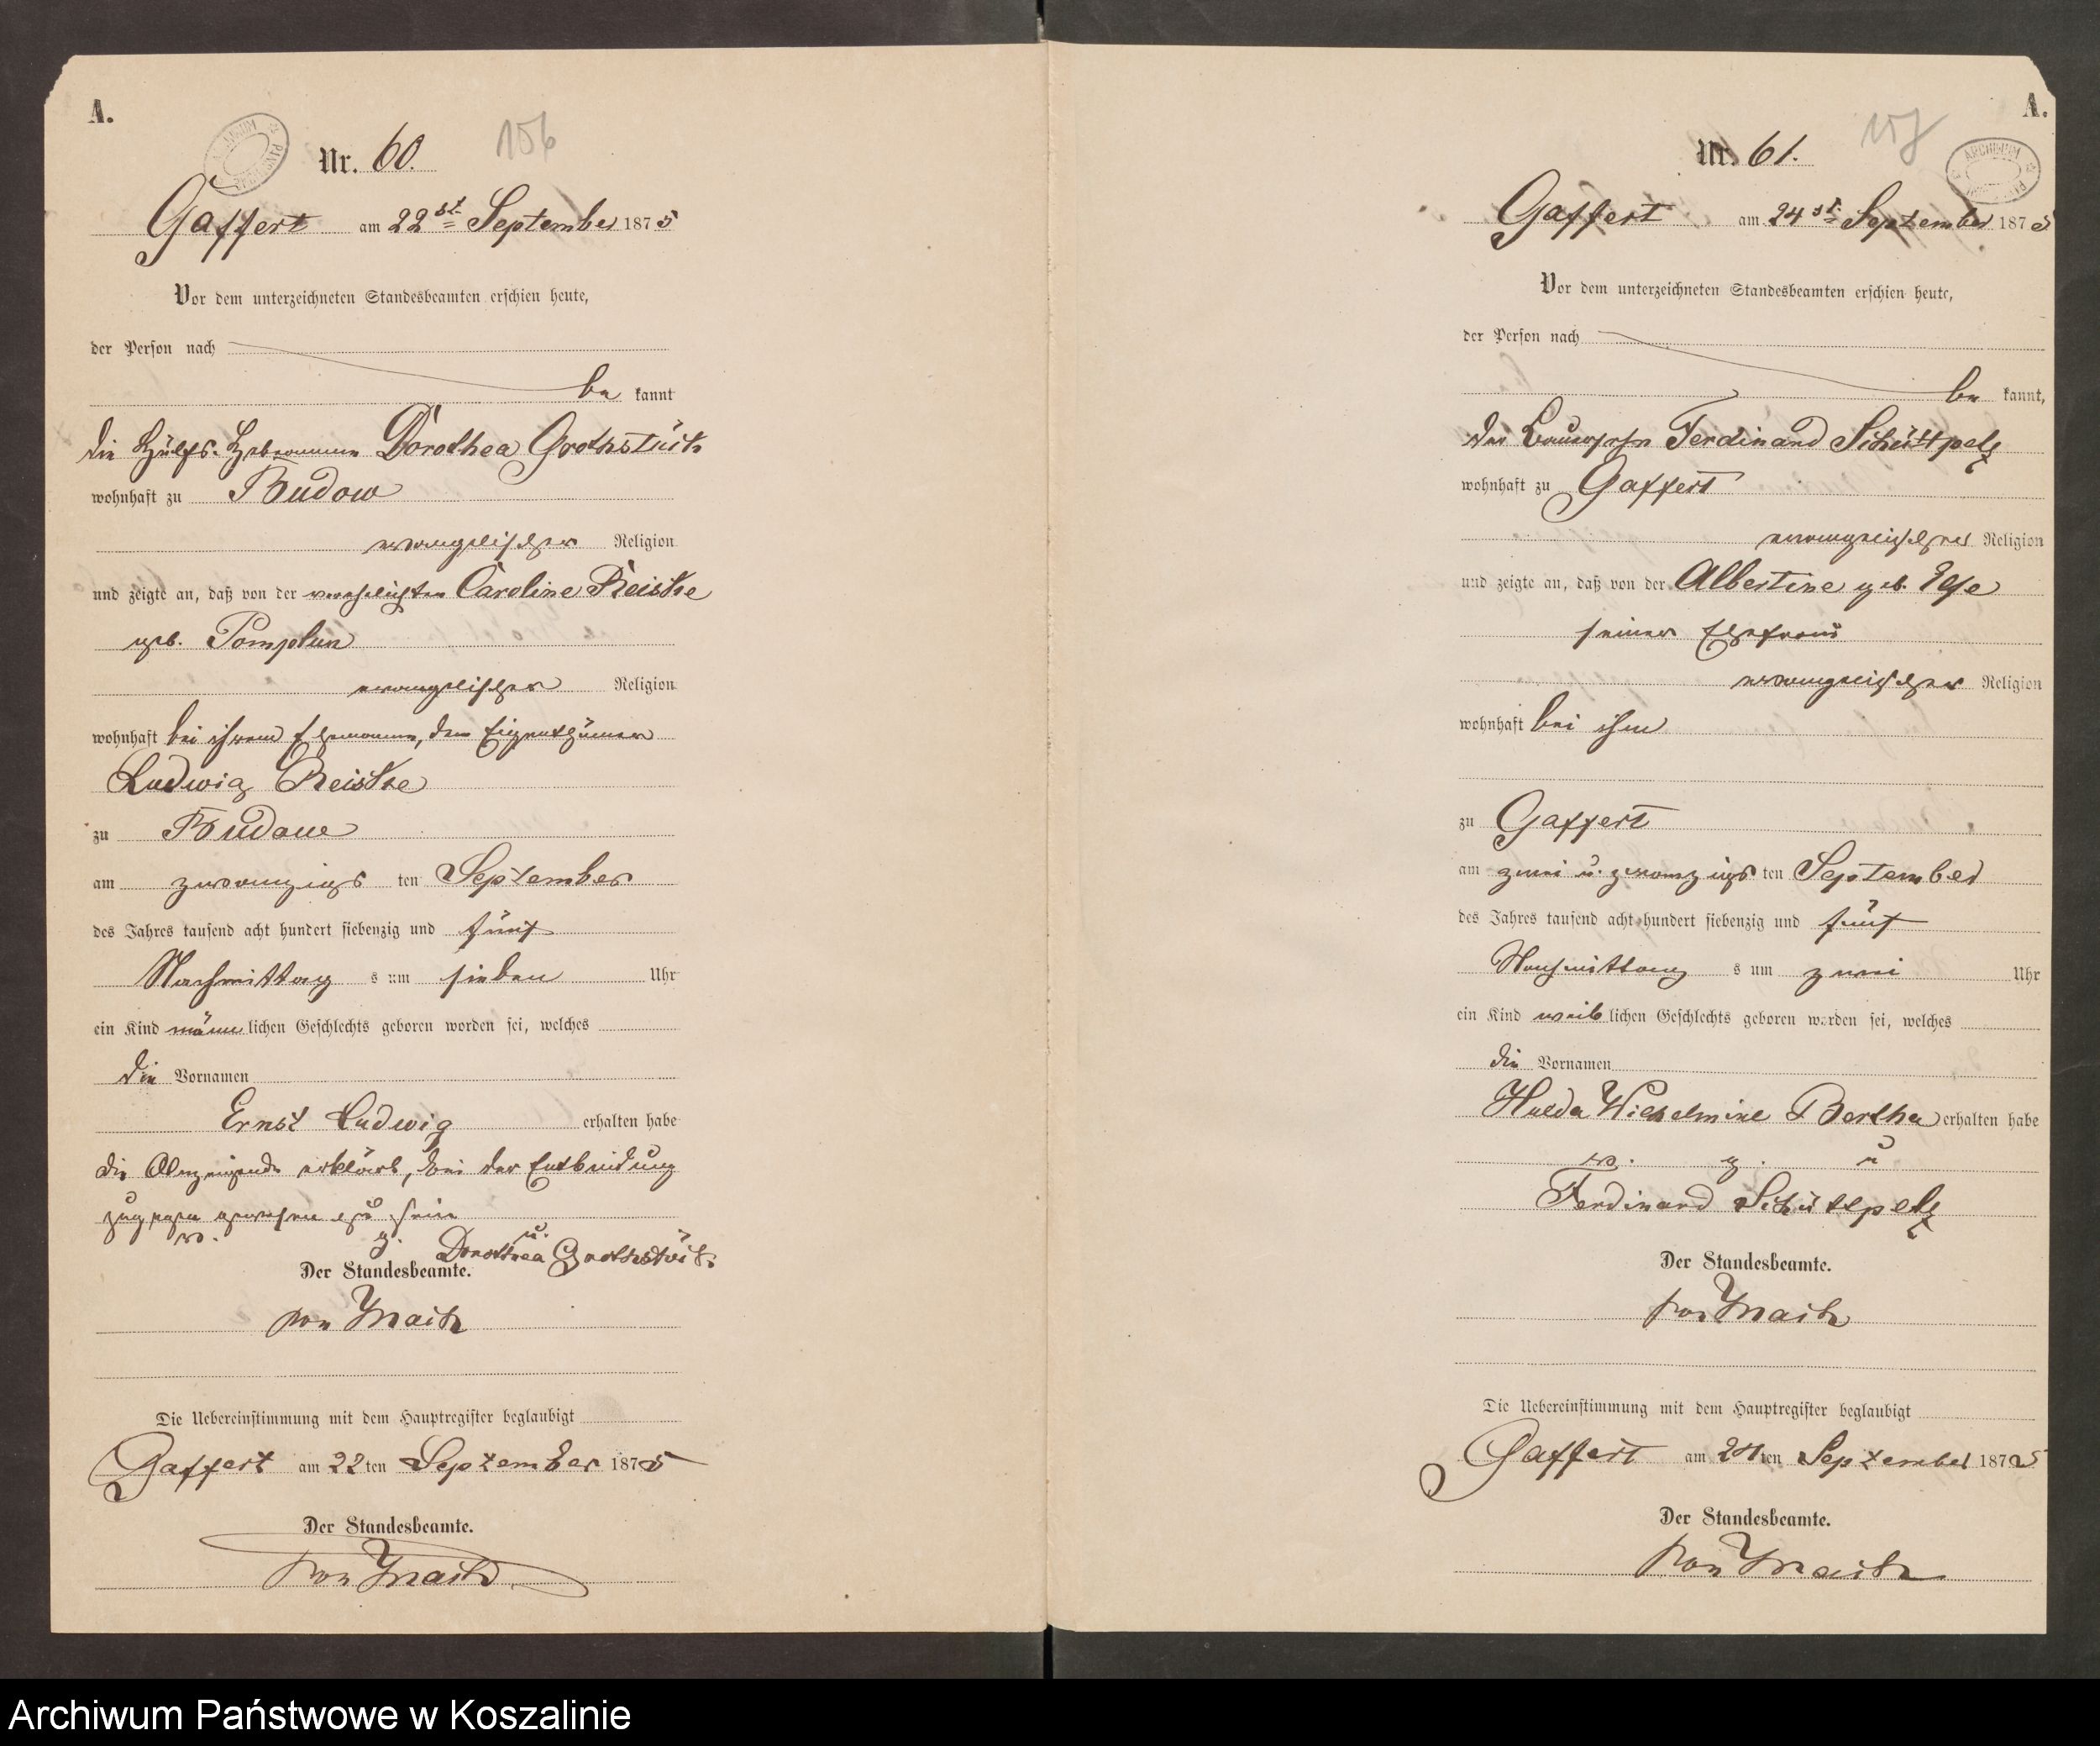 A.
Nr. 60.
156
Gaffert am 22st September 1875
Vor dem unterzeichneten Standesbeamten erschien heute,
der Person nach
be kannt
die Hülfs-Hebamme Dorothea Grothstück
wohnhaft zu Budow
evangelischer Religion
und zeigte an, daß von der verehelichten Caroline Reiske
geb. Pomplun
evangelischer Religion
wohnhaft bei ihrem Ehemanne, dem Eigenthümer
Ludwig Reiske
zu Budow
am zwanzigs ten September
des Jahres tausend acht hundert siebenzig und fünf
Nachmittag s um sieben Uhr
ein Kind männ lichen Geschlechts geboren worden sei, welches
die Vornamen
Ernst Ludwig erhalten habe
die Anzeigende erklärt, bei der Entbindung
zugegen gewesen zu sein
v. g. u.
Dorothea Grothstück
Der Standesbeamte.
von
Die Uebereinstimmung mit dem Hauptregister beglaubigt
Gaffert am 22 ten September 1875
Der Standesbeamte.
von
A.
Nr. 61.
157
ARCHIWUM
Gaffert am 24st September 1875
Vor dem unterzeichneten Standesbeamten erschien heute,
der Person nach
be kannt,
der Ferdinand Schüttpelz
wohnhaft zu Gaffert
evangelischer Religion
und zeigte an, daß von der Albertine geb.
seiner Ehefrau
evangelischer Religion
wohnhaft bei ihm
zu Gaffert
am zwei u. zwanzigs ten September
des Jahres tausend acht hundert siebenzig und fünf
Nachmittag s um zwei Uhr
ein Kind weib lichen Geschlechts geboren worden sei, welches
die Vornamen
Hulda Wilhelmine Bertha erhalten habe
v. g. u
Ferdinand Schüttpelz
Der Standesbeamte.
von
Die Uebereinstimmung mit dem Hauptregister beglaubigt
Gaffert am 24 ten September 1875
Der Standesbeamte.
von
Archiwum Państwowe w Koszalinie